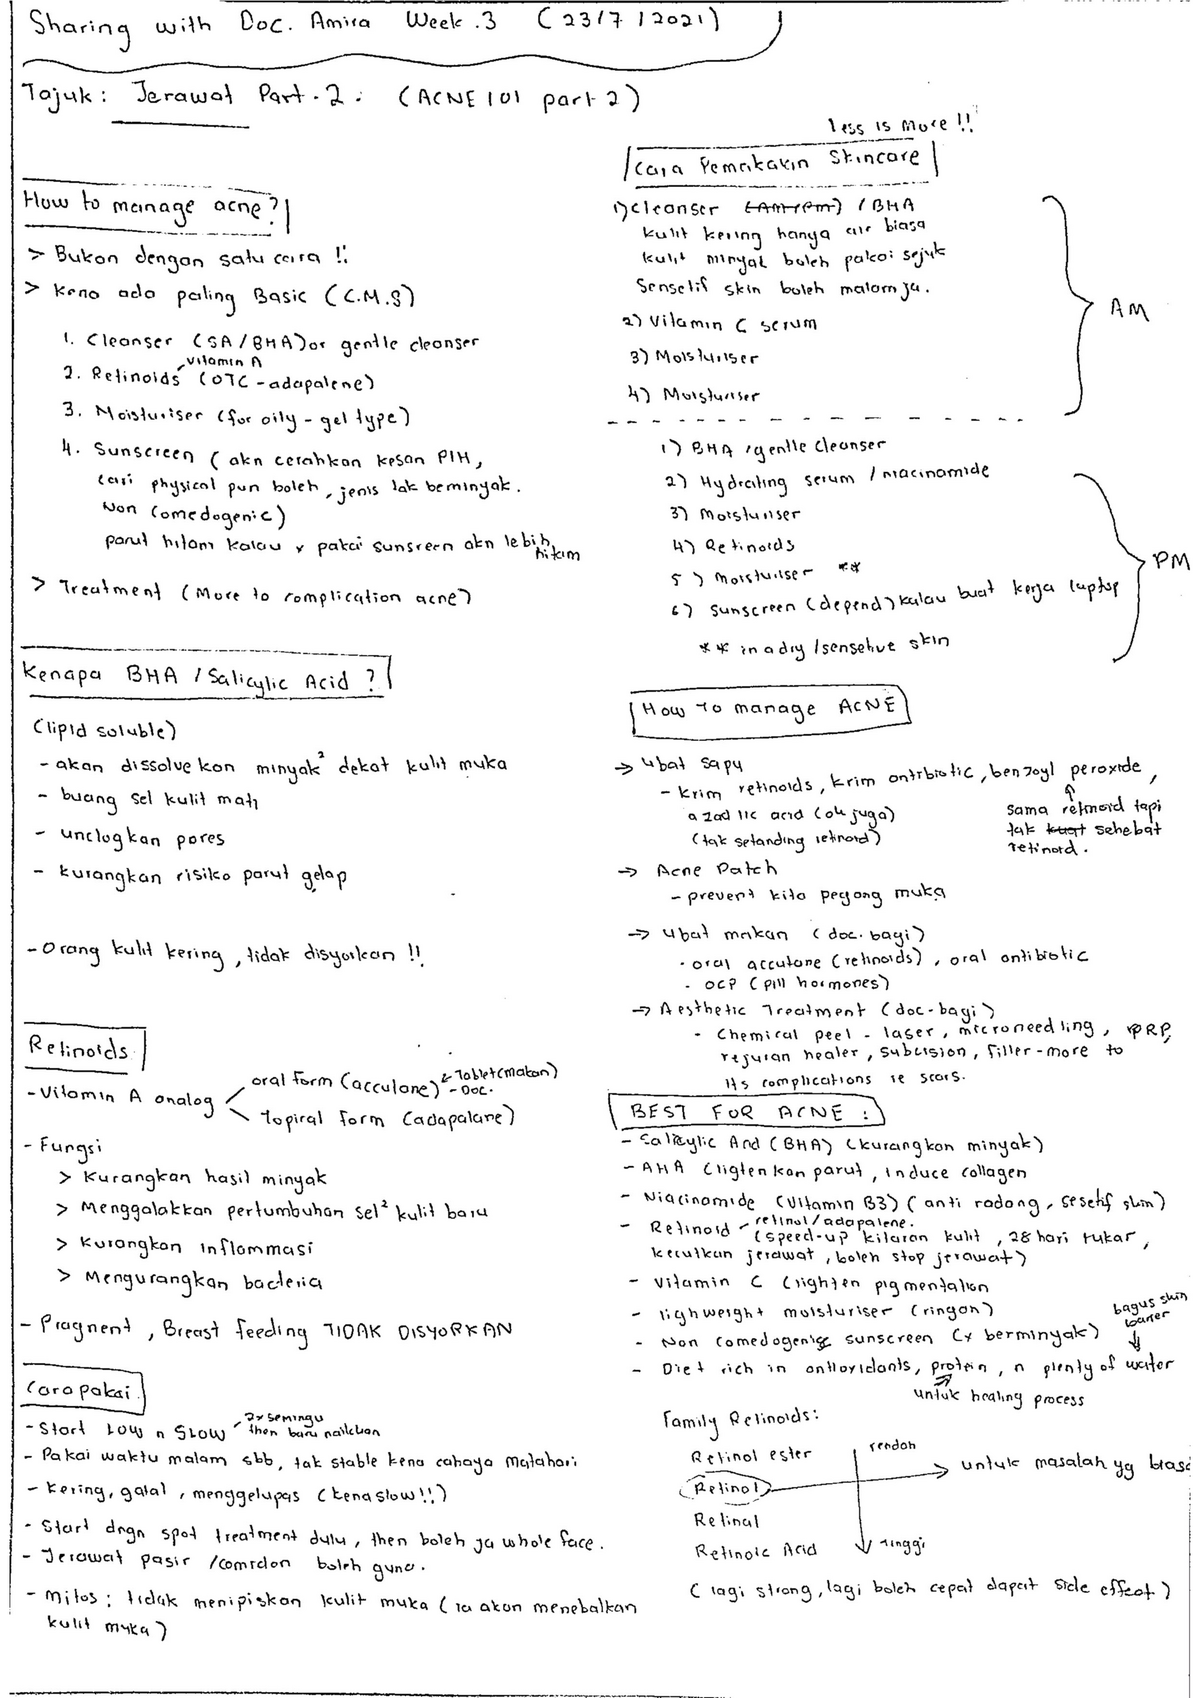 Sharing with Doc. Amira Week.3 (23/7/2021)
Tajuk: Jerawat Part.2: (ACNE 101 part 2)
How to manage acne?
> Bukan dengan satu cara !!
> Kena ada paling Basic (C.M.S)
1. Cleanser (SA/BHA) or gentle cleanser
vitamin A
2. Retinoids (OTC-adapalene)
3. Moisturiser (for oily - gel type)
4. Sunscreen ( akn cerahkan kesan PIH,
cari physical pun boleh, jenis tak beminyak.
Non comedogenic)
parut hitam kalau x pakai sunsreen akn lebih
hitam
> Treatment (More to complication acne)
Kenapa BHA / Salicylic Acid ?
(lipid soluble)
- akan dissolve kan minyak² dekat kulit muka
- buang sel kulit mati
- unclogkan pores
- kurangkan risiko parut gelap
- Orang kulit kering, tidak disyorkan !!
Retinoids
- Vitamin A analog
oral form (accutane)
Tablet (makan)
- Doc.
Topical form (adapalane)
- Fungsi
> Kurangkan hasil minyak
> Menggalakkan pertumbuhan sel² kulit baru
> Kurangkan inflammasi
> Mengurangkan bacteria
- Pragnent, Breast feeding TIDAK DISYORKAN
Cara pakai
- Start Low n Slow
2x semingu
then baru naikkan
- Pakai waktu malam sbb, tak stable kena cahaya matahari
- Kering, gatal, menggelupas (kena slow!!)
- Start dngn spot treatment dulu, then boleh ja whole face.
- Jerawat pasir / comedon boleh guna.
- Mitos: tidak menipiskan kulit muka (ia akan menebalkan
kulit muka)
less is More !!
Cara Pemakaian Skincare
1) Cleanser (AM/PM) / BHA
kulit kering hanya air biasa
kulit minyak boleh pakai sejuk
Sensetif skin boleh malam ja.
2) Vitamin C serum
3) Moisturiser
4) Moisturiser
AM
1) BHA / gentle cleanser
2) Hydrating serum / niacinamide
3) Moisturiser
4) Retinoids
5) Moisturiser **
6) Sunscreen (depend) kalau buat kerja laptop
** in a dry / sensetive skin
PM
How To manage ACNE
→ Ubat sapu
- krim retinoids, krim antibiotic, benzoyl peroxide,
azaclic acid (ok juga)
(tak setanding retinoid)
sama retinoid tapi
tak kuat sehebat
retinoid.
→ Acne Patch
- prevent kita pegang muka
→ Ubat makan (doc. bagi)
· oral accutane (retinoids), oral antibiotic
· OCP (pill hormones)
→ Aesthetic Treatment (doc-bagi)
- Chemical peel - laser, microneedling, PRP,
rejuran healer, subcision, filler - more to
its complications ie scars.
BEST FOR ACNE :
- Salicylic Acid (BHA) (kurangkan minyak)
- AHA (ligtenkan parut, induce collagen
- Niacinamide (Vitamin B3) (anti radang, sesetif skin)
- Retinoid - retinol/adapalene.
(speed-up kitaran kulit, 28 hari tukar,
kecutkan jerawat, boleh stop jerawat)
- Vitamin C (lighten pigmentation
- lighweight moisturiser (ringan)
- Non comedogenic sunscreen (x berminyak)
bagus skin
barrier
- Diet rich in antioxidants, protein, n plenty of water
untuk healing process
Family Retinoids:
Retinol ester
Retinol
Retinal
Retinoic Acid
rendah
untuk masalah yg biasa
Tinggi
(lagi strong, lagi boleh cepat dapat side effect)